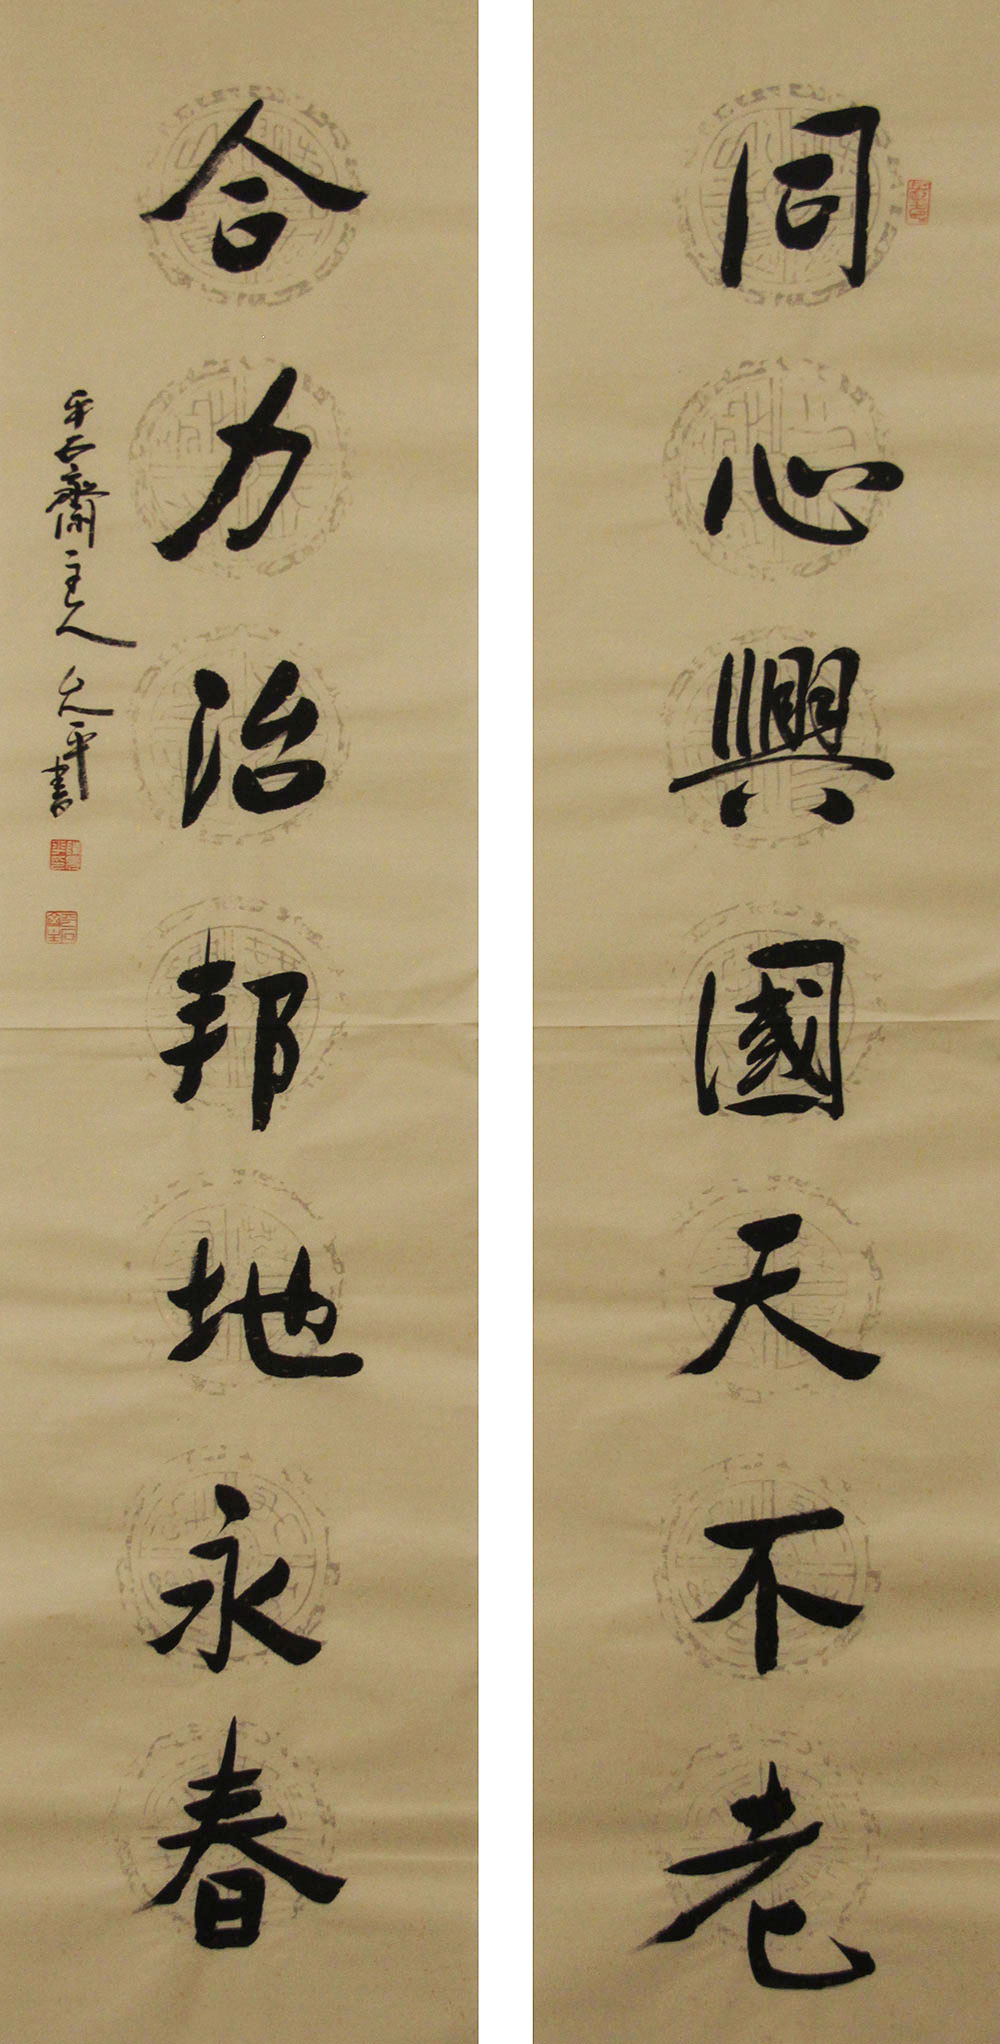 同心興國天不老
合力治邦地永春
平石齋主人允平書